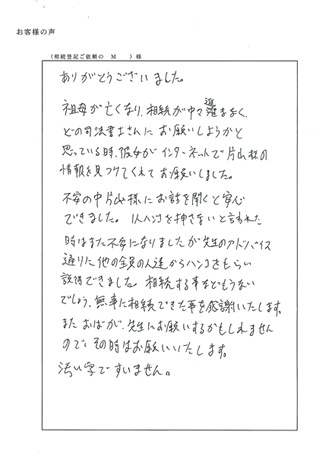 お客様の声
(相続登記ご依頼の M )様
ありがとうございました。
祖母が亡くなり、相続が中々進まなく、
どの司法書士さんにお願いしようかと
思っている時、彼女がインターネットで片山様の
情報を見つけてくれてお願いしました。
不安の中片山様にお話を聞くと安心
できました。1人ハンコを押さないと言われた
時はまた不安になりましたが先生のアドバイス
通りに他の全員の人達からハンコをもらい
説得できました。相続する事などもうない
でしょう、無事に相続できた事を感謝いたします。
またおばが、先生にお願いするかもしれません
ので、その時はお願いいたします。
汚い字ですいません。